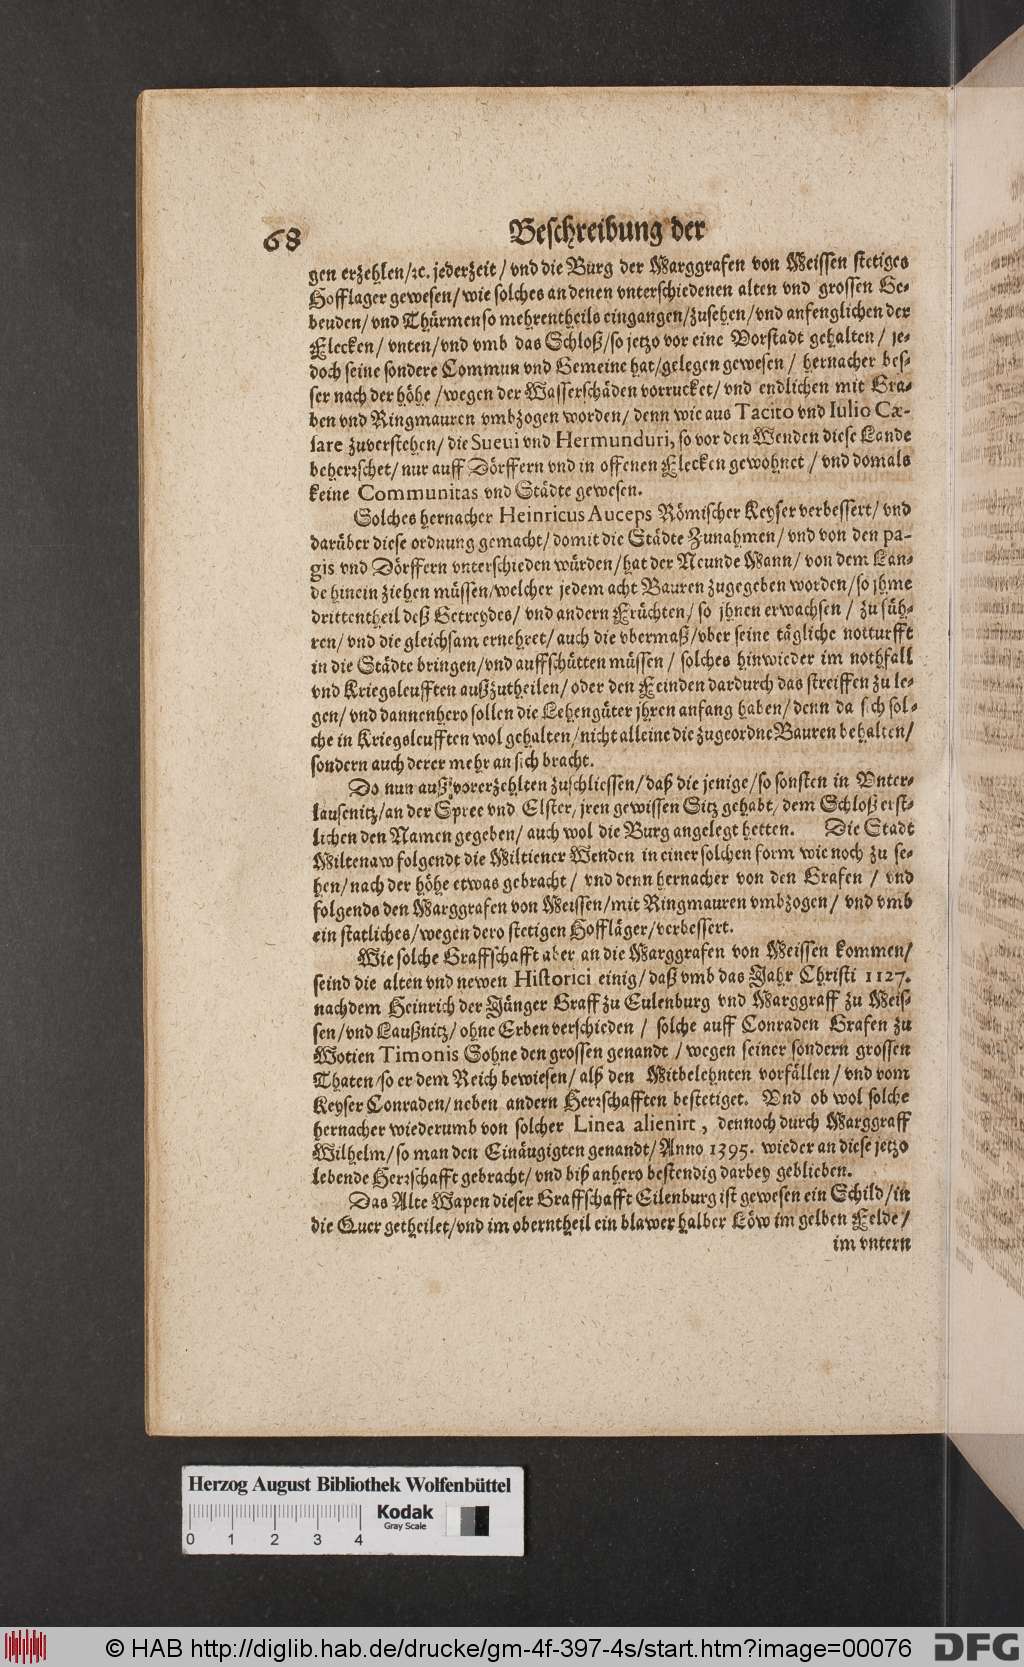 68 Beschreibung der
gen erzehlen/ꝛc. jederzeit / vnd die Burg der Marggrafen von Meissen stetiges
Hofflager gewesen/ wie solches an denen vnterschiedenen alten vnd grossen Ge-
beuden/ vnd Thürmen so mehrentheils eingangen/zusehen/ vnd anfenglichen der
Flecken/ vnten/ vnd vmb das Schloß/ so jetzo vor eine Vorstadt gehalten/ je-
doch seine sondere Commun vnd Gemeine hat/gelegen gewesen / hernacher bes-
ser nach der höhe / wegen der Wasserschäden vorrucket/ vnd endlichen mit Gra-
ben vnd Ringmauren vmbzogen worden/ denn wie aus Tacito vnd Iulio Cæ-
sare zuverstehen/ die Suevi vnd Hermunduri, so vor den Wenden diese Lande
beherꝛschet/ nur auff Dörffern vnd in offenen Flecken gewohnet / vnd domals
keine Communitas vnd Städte gewesen.
Solches hernacher Heinricus Auceps Römischer Keyser verbessert/ vnd
darüber diese ordnung gemacht/ domit die Städte Zunahmen/ vnd von den pa-
gis vnd Dörffern vnterschieden würden/ hat der Neunde Mann/ von dem Lan-
de hinein ziehen müssen/welcher jedem acht Bauren zugegeben worden/ so jhme
drittentheil deß Getreydes/ vnd andern Früchten/ so jhnen erwachsen / zu füh-
ren/ vnd die gleichsam ernehret/ auch die vbermaß/ vber seine tägliche notturfft
in die Städte bringen/ vnd auffschütten müssen / solches hinwieder im nothfall
vnd Kriegsleufften außzutheilen/ oder den Feinden dardurch das streiffen zu le-
gen/ vnd dannenhero sollen die Lehengüter jhren anfang haben/ denn da sich sol-
che in Kriegsleufften wol gehalten/ nicht alleine die zugeordne Bauren behalten/
sondern auch derer mehr an sich bracht.
Do nun auß vorerzehlten zuschliessen/ daß die jenige/ so sonsten in Vnter-
lausenitz/ an der Spree vnd Elster/ jren gewissen Sitz gehabt/ dem Schloß erst-
lichen den Namen gegeben/ auch wol die Burg angelegt hetten. Die Stadt
Miltenaw folgendt die Miltiener Wenden in einer solchen form wie noch zu se-
hen/ nach der höhe etwas gebracht / vnd denn hernacher von den Grafen / vnd
folgends den Marggrafen von Meissen/ mit Ringmauren vmbzogen/ vnd vmb
ein statliches/ wegen dero stetigen Hoffläger/ verbessert.
Wie solche Graffschafft aber an die Marggrafen von Meissen kommen/
seind die alten vnd newen Historici einig/ daß vmb das Jahr Christi 1127.
nachdem Heinrich der Jünger Graff zu Eulenburg vnd Marggraff zu Meis-
sen/ vnd Laußnitz/ ohne Erben verschieden / solche auff Conraden Grafen zu
Wotien Timonis Sohne den grossen genandt / wegen seiner sondern grossen
Thaten/ so er dem Reich bewiesen/ alß den Mitbelehnten vorfällen/ vnd vom
Keyser Conraden/ neben andern Herꝛschafften bestetiget. Vnd ob wol solche
hernacher wiederumb von solcher Linea alienirt, dennoch durch Marggraff
Wilhelm/ so man den Einäugigten genandt/ Anno 1395. wieder an diese jetzo
lebende Herꝛschafft gebracht/ vnd biß anhero bestendig darbey geblieben.
Das Alte Wapen dieser Graffschafft Eilenburg ist gewesen ein Schild/ in
die Quer getheilet/ vnd im oberntheil ein blawer halber Löw im gelben Felde/
im vntern
Herzog August Bibliothek Wolfenbüttel
Kodak
Gray Scale
0 1 2 3 4
© HAB http://diglib.hab.de/drucke/gm-4f-397-4s/start.htm?image=00076
DFG